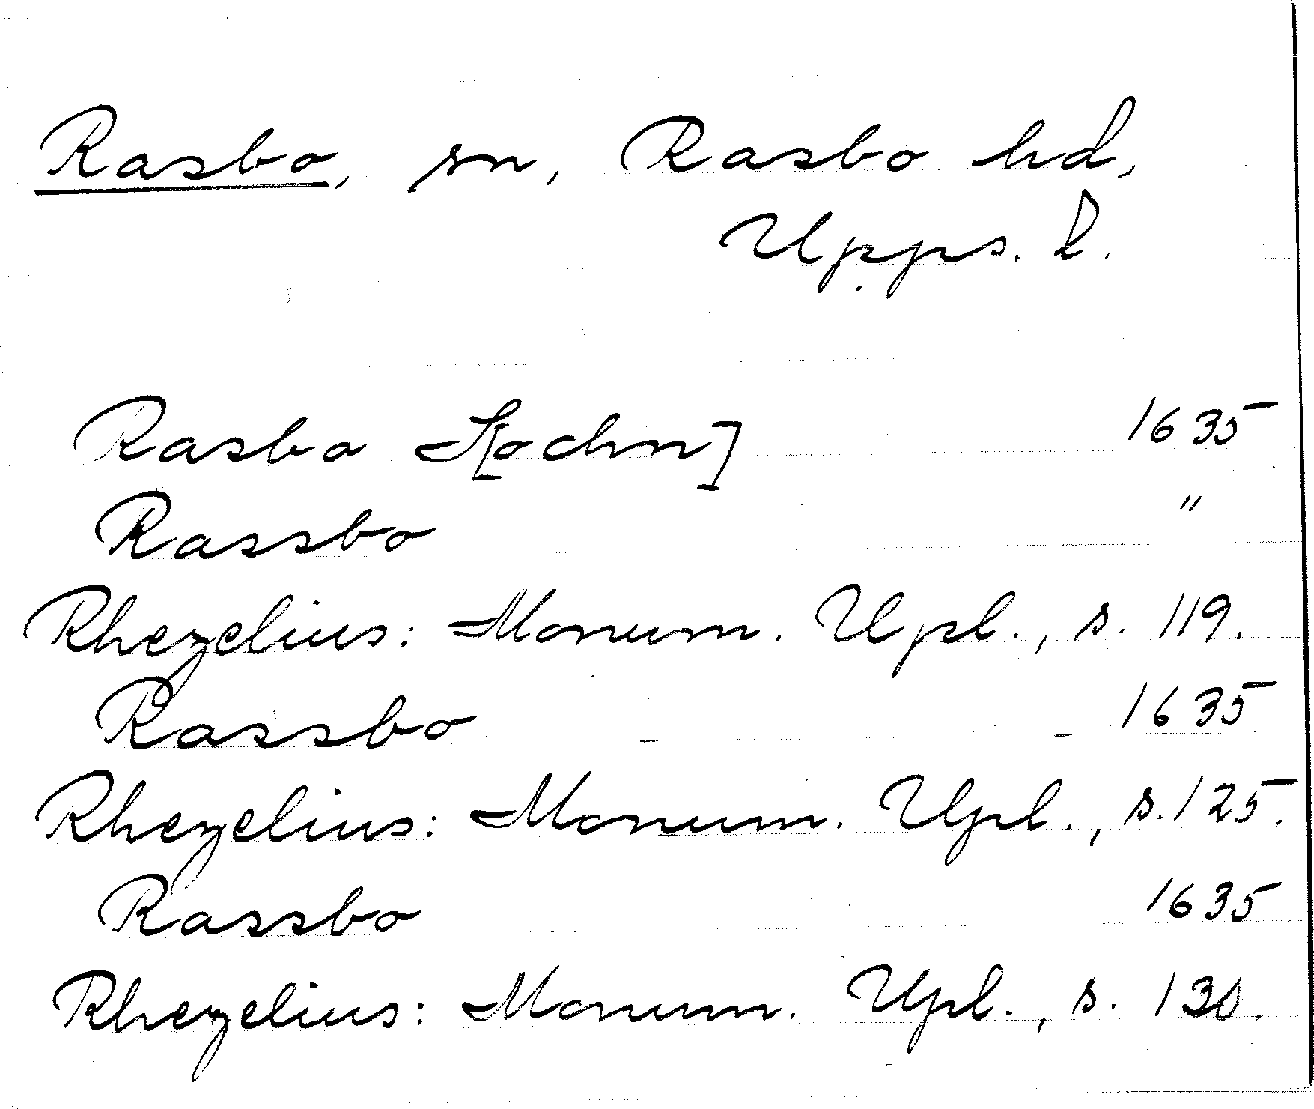 Rasbo, sn, Rasbo hd,
Upps. l.
Rasbo S[ochn] 1635
Rassbo "
Rhezelius: Monum. Upl., s. 119.
Rassbo 1635
Rhezelius: Monum. Upl., s. 125.
Rassbo 1635
Rhezelius: Monum. Upl., s. 130.